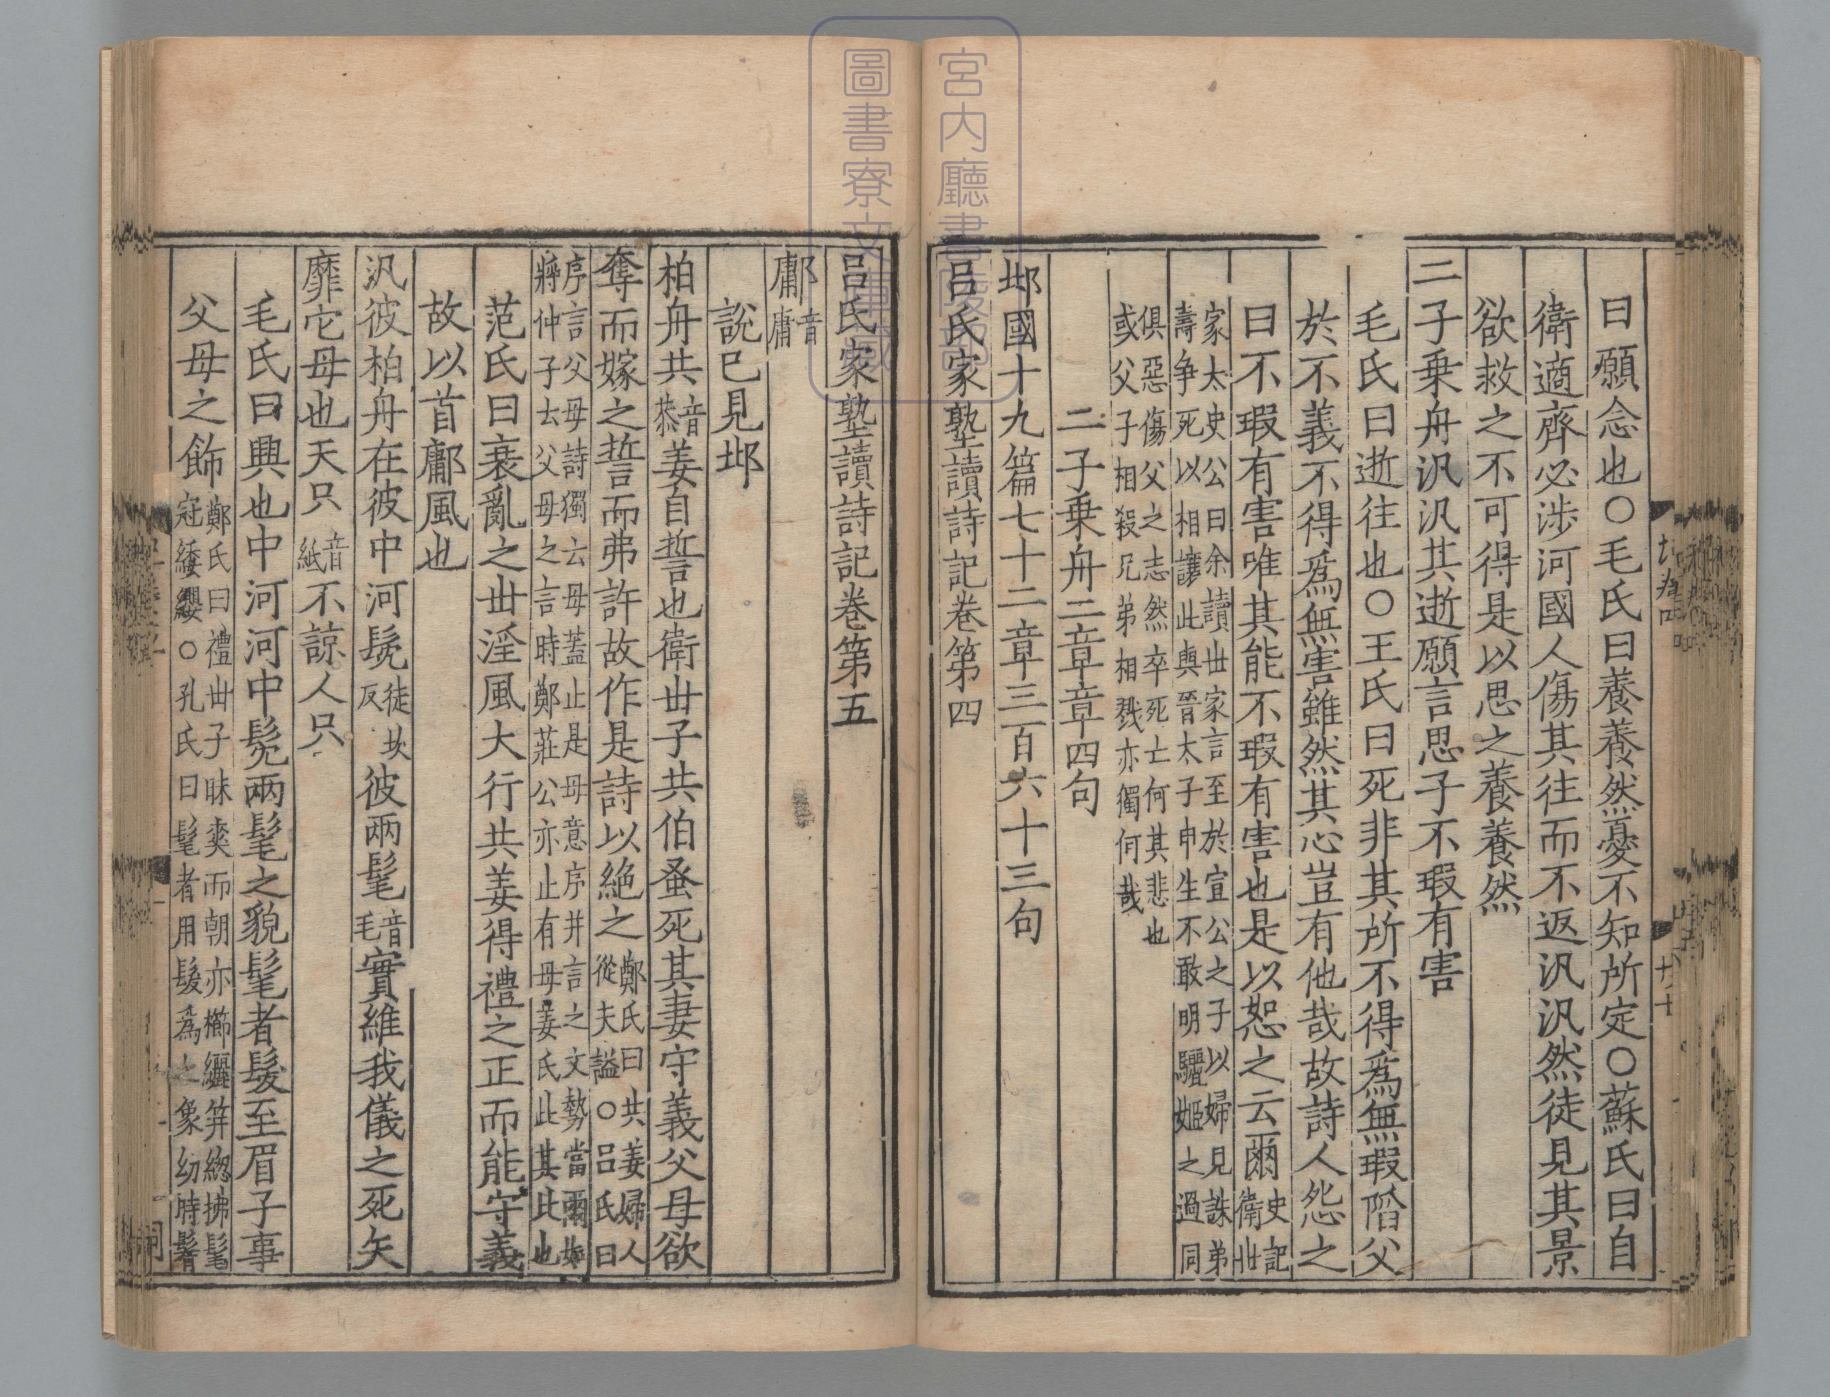 曰願念也○毛氏曰養養然憂不知所定○蘇氏曰自
衛適齊必涉河國人傷其往而不返汎汎然徒見其景
欲救之不可得是以思之養養然
二子乗舟汎汎其逝願言思子不瑕有害
毛氏曰逝往也○王氏曰死非其所不得爲無瑕階父
於不義不得爲無害雖然其心豈有他哉故詩人怨之
曰不瑕有害唯其能不瑕有害也是以恕之云爾
史記
衛丗
家太史公曰余讀丗家言至於宣公之子以婦見誅弟
壽爭死以相讓此與晉太子申生不敢明驪姬之過同
俱惡傷父之志然卒死亡何其悲也
或父子相殺兄弟相戮亦獨何哉
二子乗舟二章章四句
邶國十九篇七十二章三百六十三句
吕氏家塾讀詩記卷第四
吕氏家塾讀詩記卷第五
鄘
音
庸
説已見邶
柏舟共
音
恭
姜自誓也衛丗子共伯蚤死其妻守義父母欲
奪而嫁之誓而弗許故作是詩以絶之
鄭氏曰共姜婦人
從夫謚○吕氏曰
序言父母詩獨云母蓋止是母意序并言之文勢當爾如
將仲子去父母之言時鄭莊公亦止有母姜氏此其比也
范氏曰衰亂之丗淫風大行共姜得禮之正而能守義
故以首鄘風也
汎彼柏舟在彼中河髧
徒坎
反
彼兩髦
音
毛
實維我儀之死矢
靡它母也天只
音
紙
不諒人只
毛氏曰興也中河河中髧兩髦之貌髦者髮至眉子事
父母之飾
鄭氏曰禮丗子昧爽而朝亦櫛纚笄總拂髦
冠緌纓○孔氏曰髦者用髮爲之象幼時鬌
宮内廳書陵部
圖書寮文庫藏